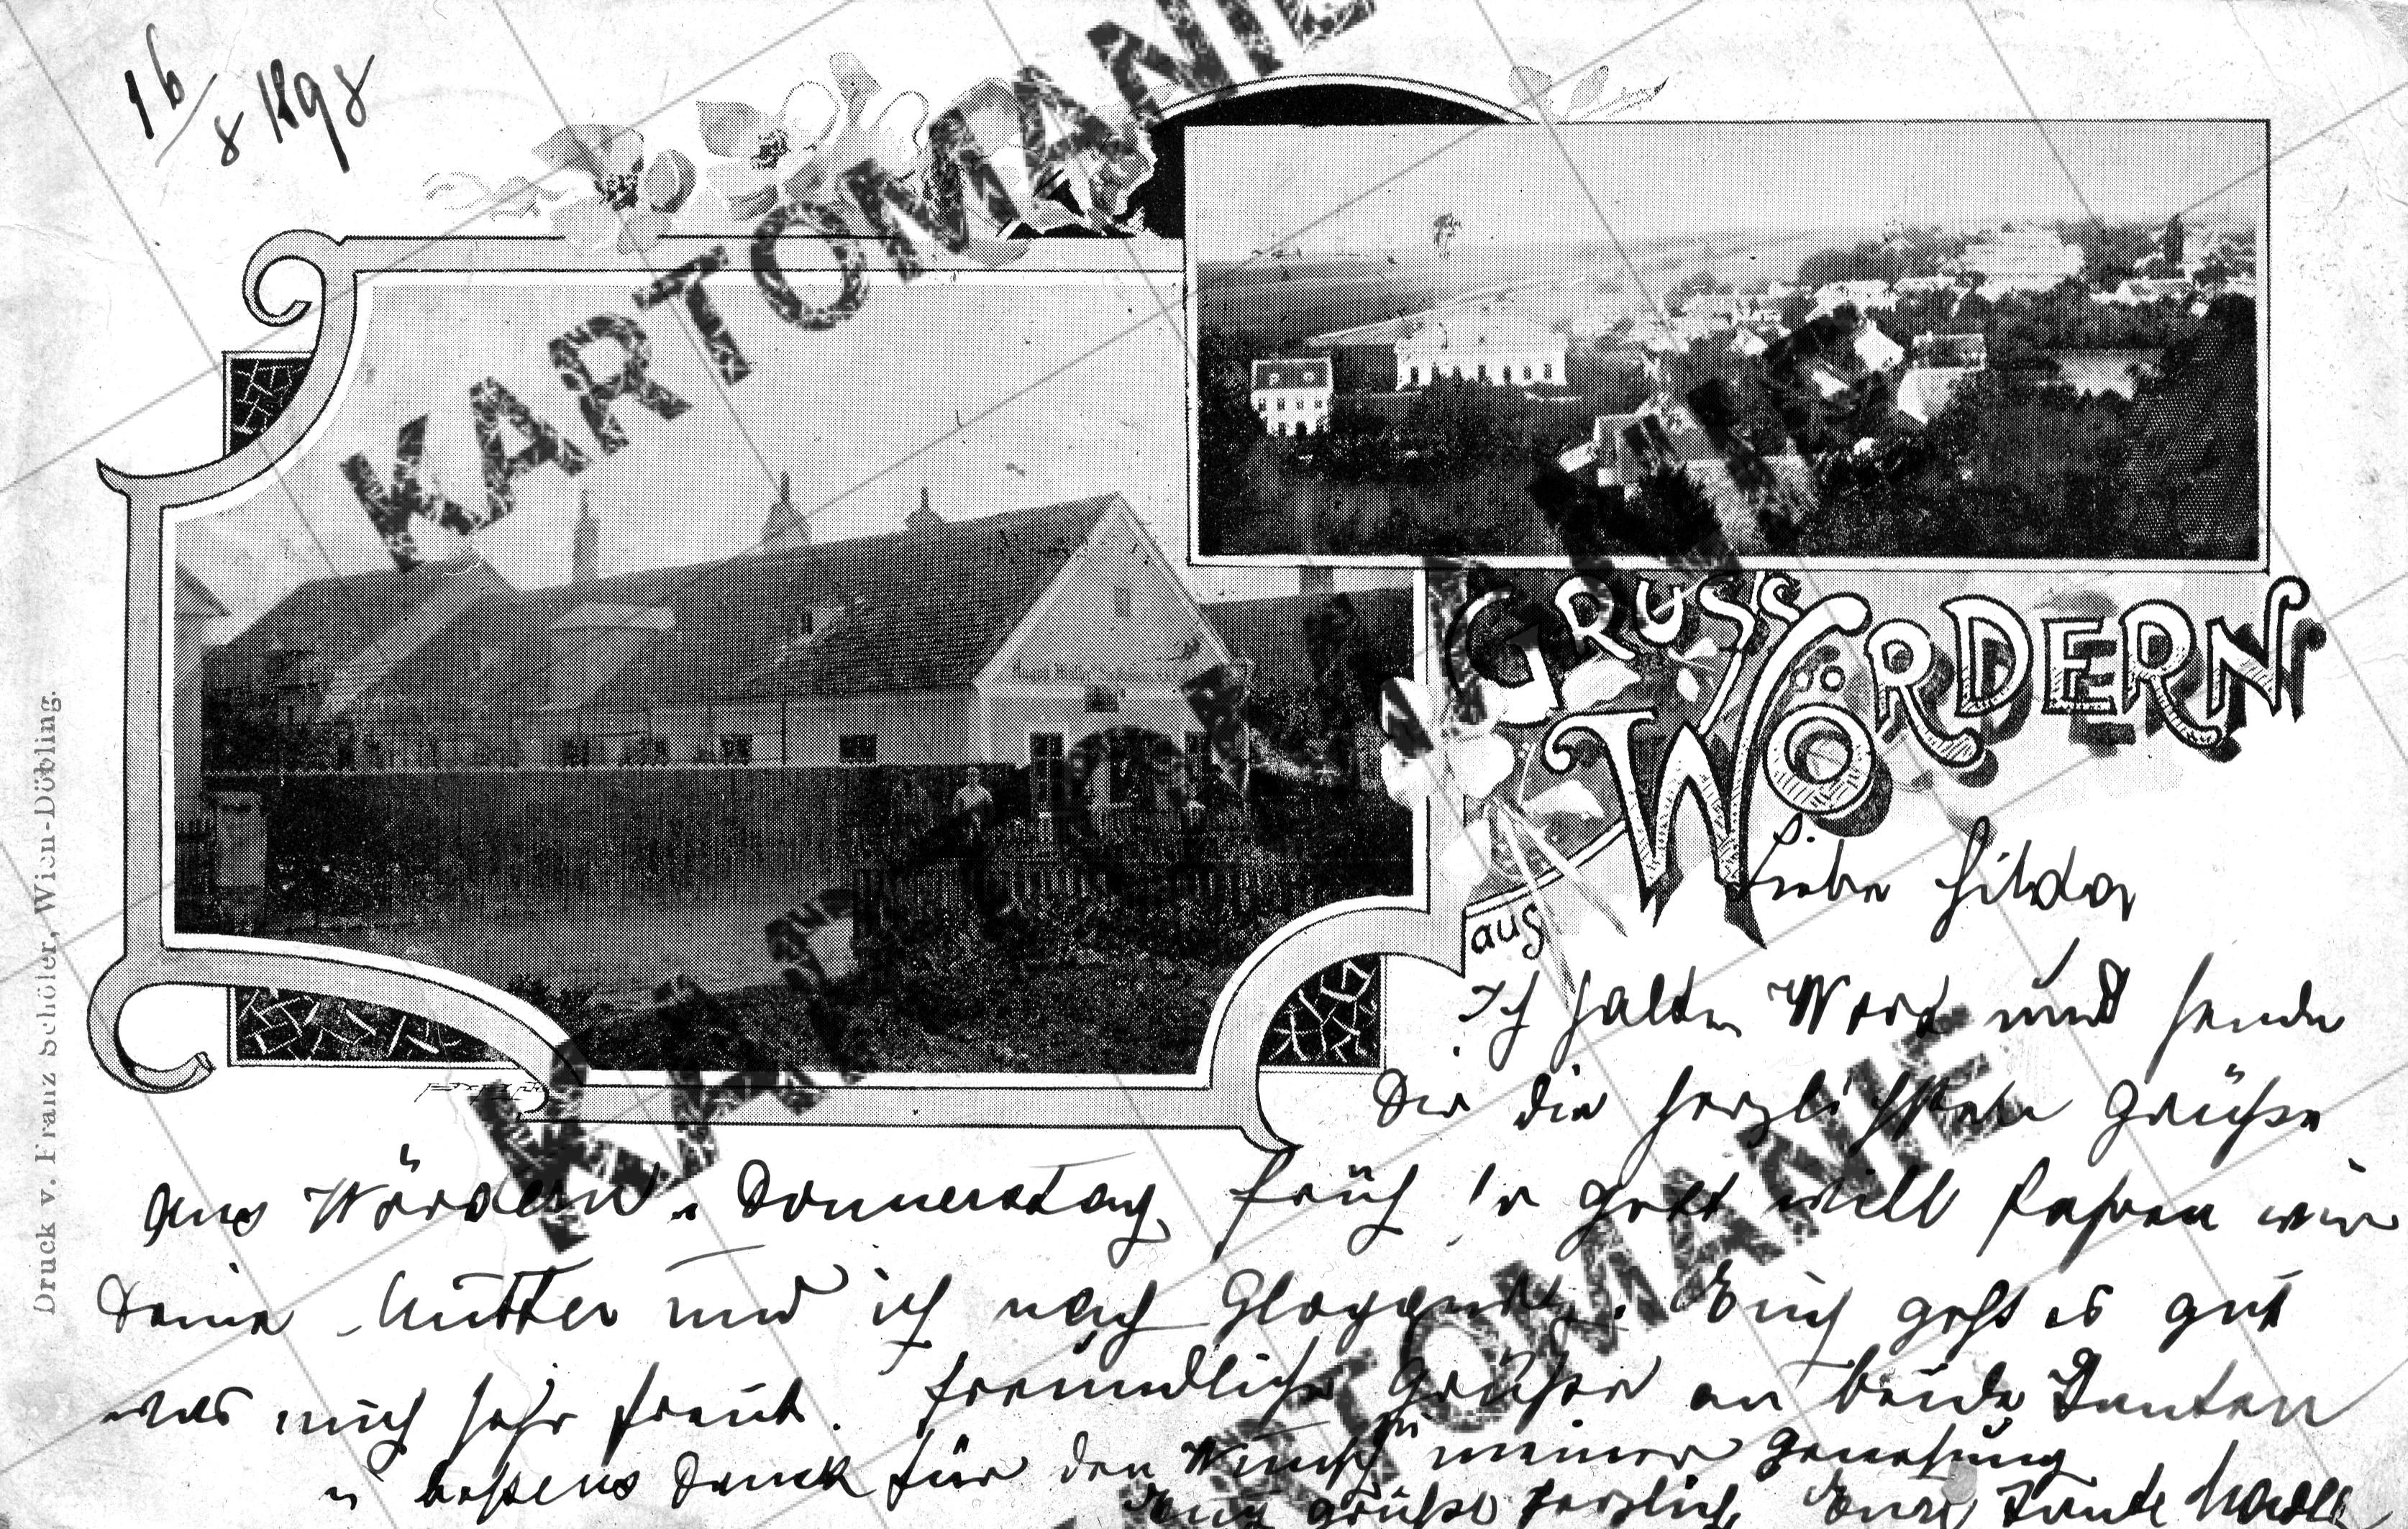 16/8 1898
KARTOMANIE
GRUSS
aus
WÖRDERN
Druck v. Franz Schöler, Wien-Döbling.
Liebe Hilda
Ich halte Wort und sende
Dir die herzlichsten Grüße
aus Wördern. Donnerstag früh so Gott will fahren wir
Deine Mutter und ich nach Gloggnitz. Euch geht es gut
was mich sehr freut. Freundliche Grüße an beide Tanten
u bestens Dank für den Wunsch meiner Genesung
Euch grüßt herzlich Eure Tante
KARTOMANIE
KARTOMANIE